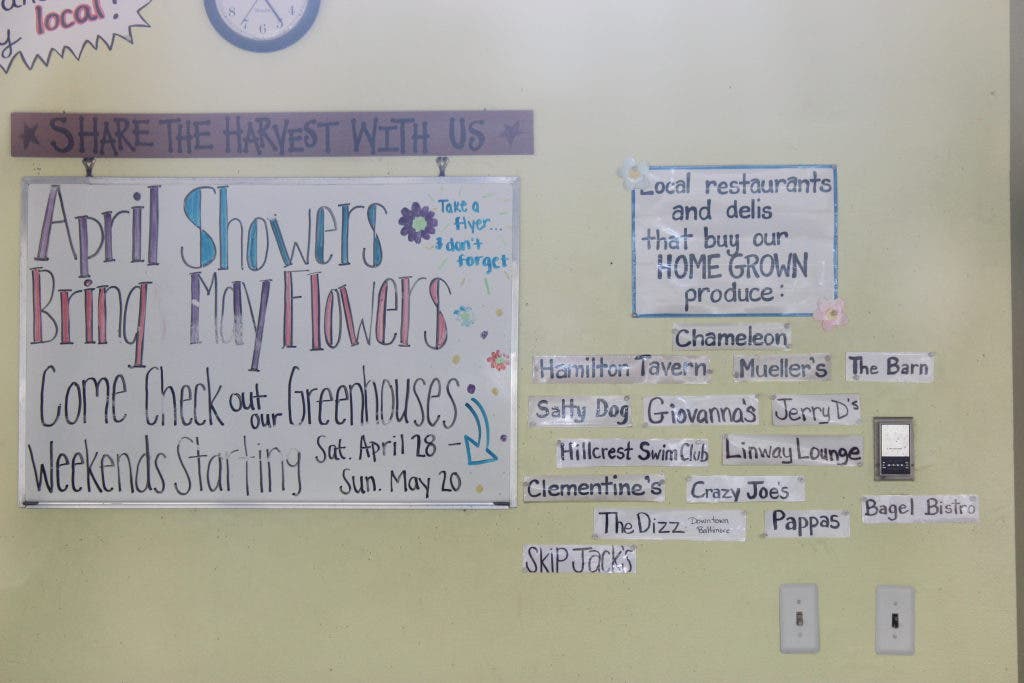 local!
SHARE THE HARVEST WITH US
April Showers
Bring May Flowers
Take a
flyer...
don't
forget
Come Check out our Greenhouses
Weekends Starting Sat. April 28 -
Sun. May 20
Local restaurants
and delis
that buy our
HOME GROWN
produce:
Chameleon
Hamilton Tavern
Mueller's
The Barn
Salty Dog
Giovanna's
Jerry D's
Hillcrest Swim Club
Linway Lounge
Clementine's
Crazy Joe's
Bagel Bistro
The Dizz Downtown Baltimore
Pappas
Skip Jack's